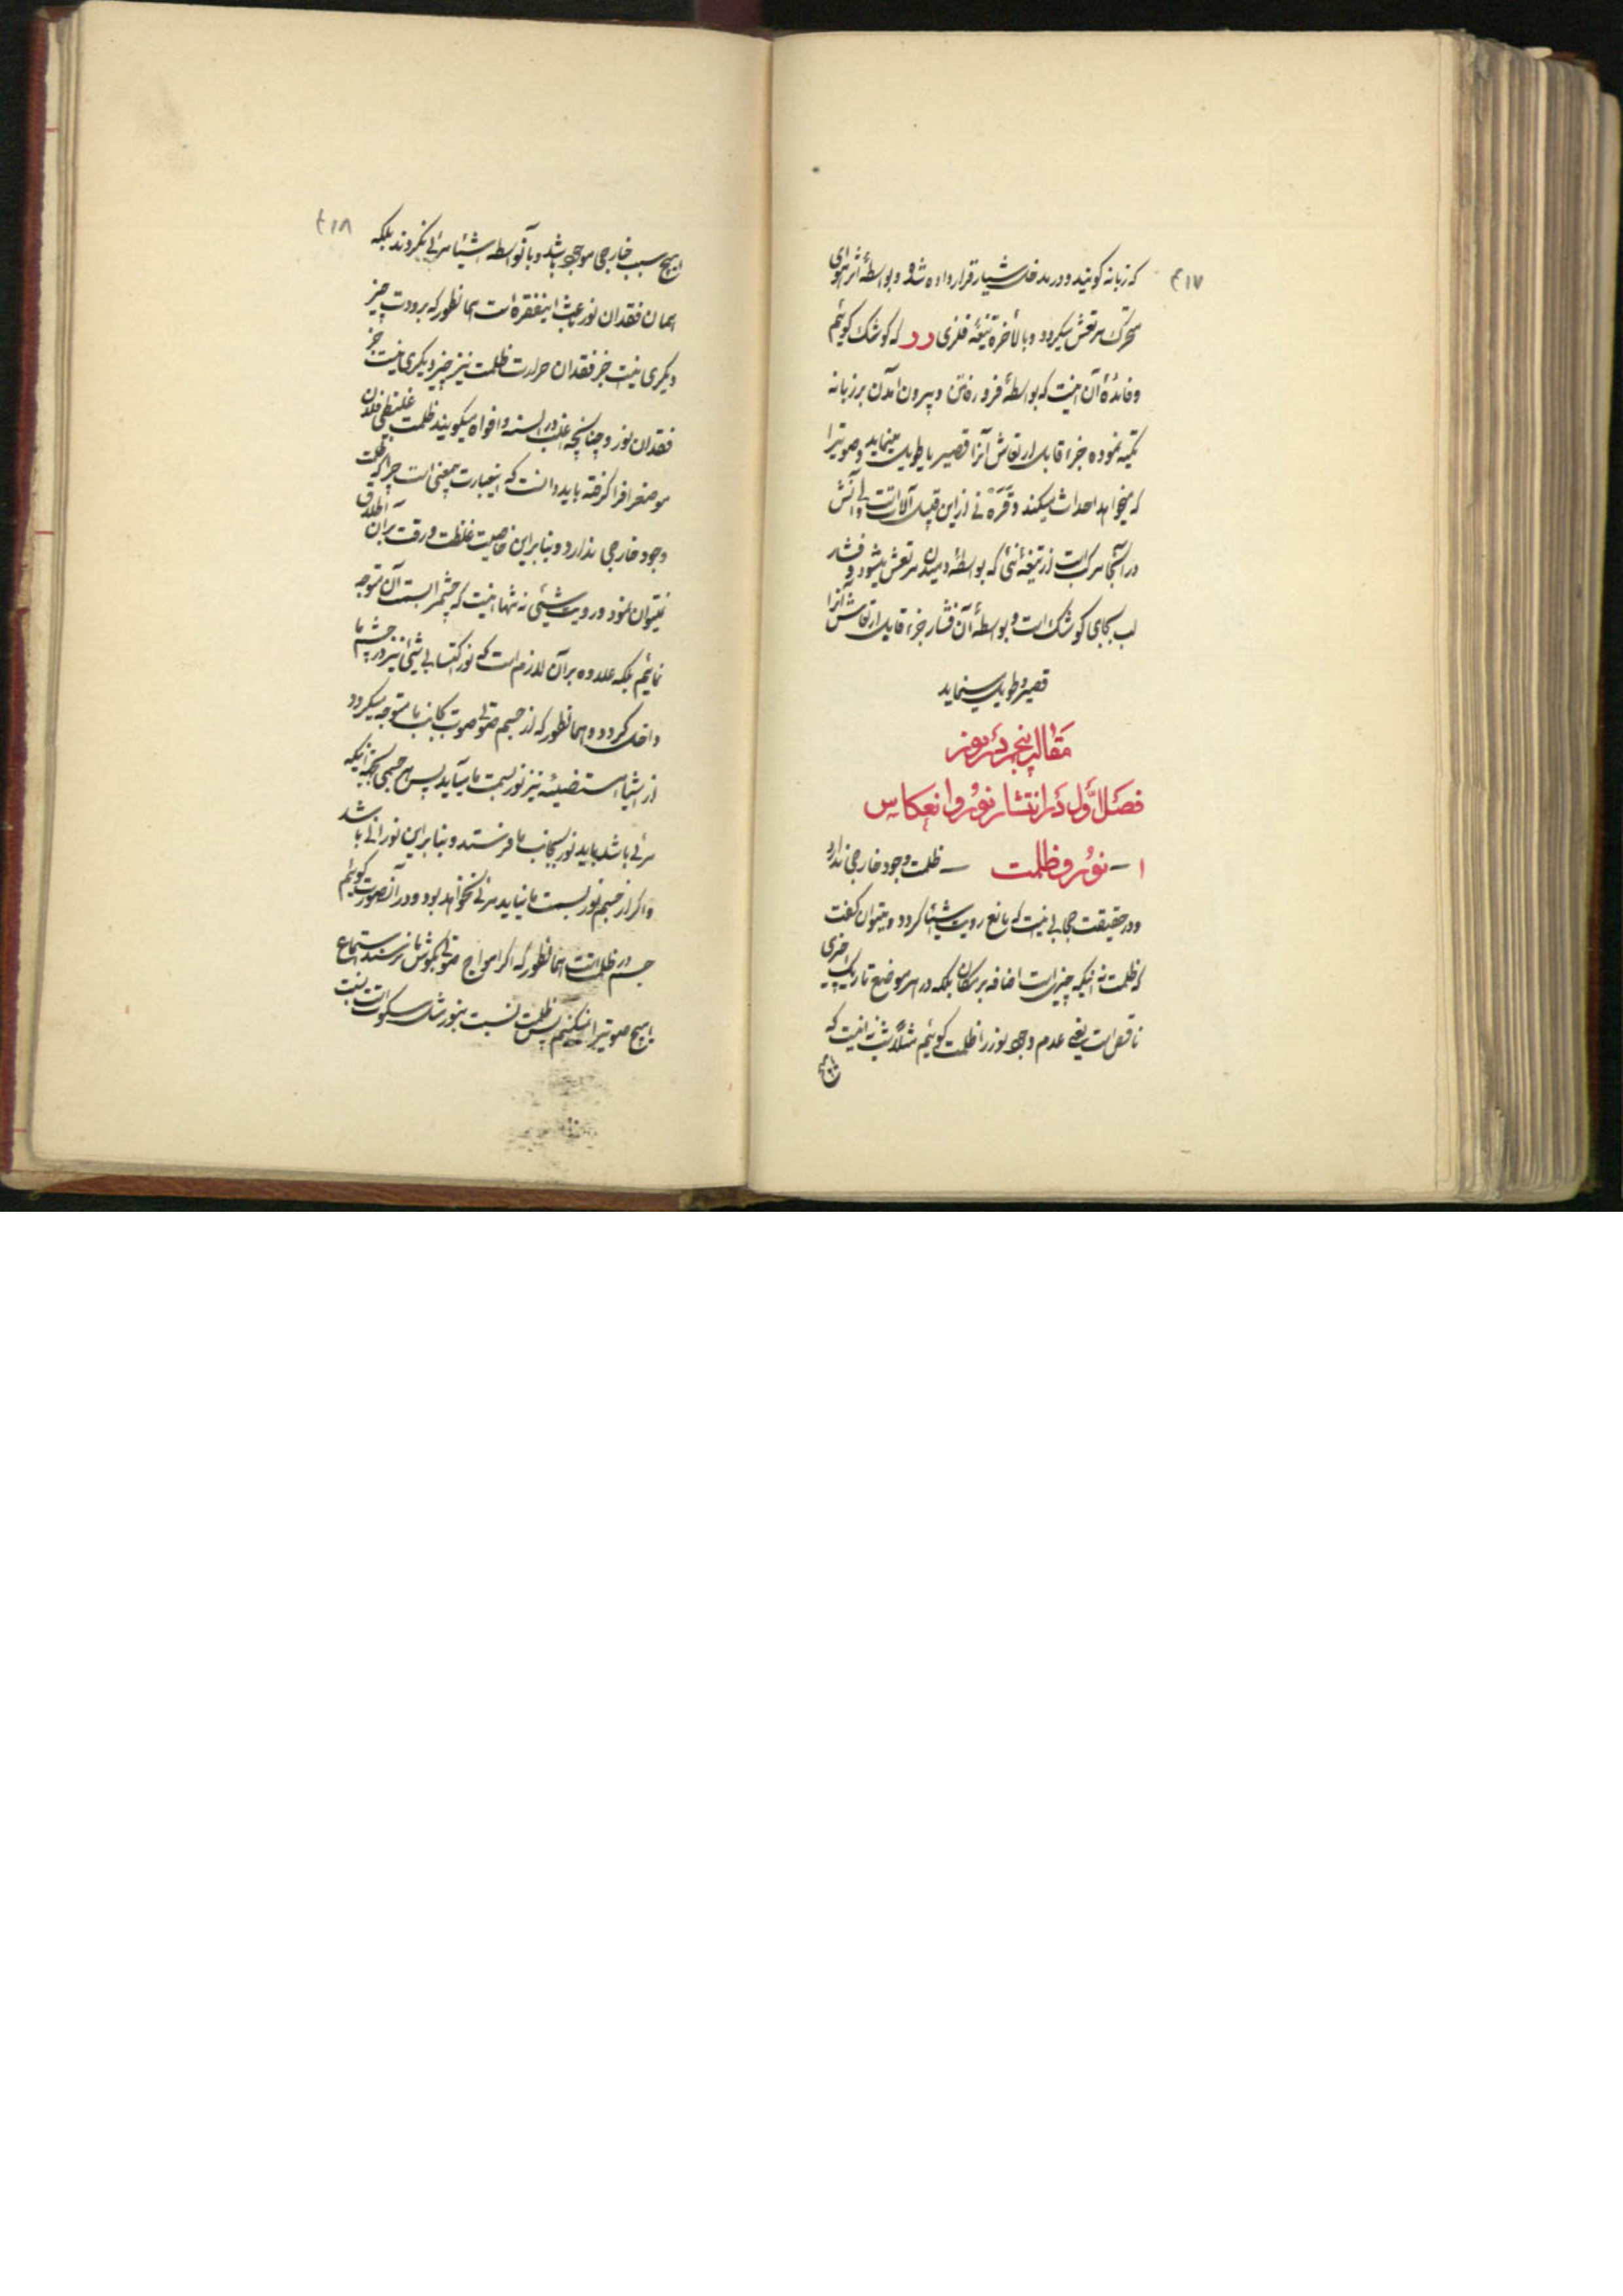 ۴۱۷
که زبانه گویند و در مدخل شیار قرار داده شده و بواسطهٔ اثر هوای
متحرک مرتعش میگردد و بالأخره تیغهٔ فلزی در که گوشک گوئیم
و فائدهٔ آن اینست که بواسطهٔ فرو رفتن و بیرون آمدن بر زبانه
تکیه نموده جزء قابل ارتعاش آنرا قصیر یا طویل مینماید و صوتیرا
که میخواهد احداث میکند و قره نی از این قبیل آلات است ولی آتش
در آنجا مرکب است از تیغهٔ نئی که بواسطهٔ دمیدن مرتعش میشود و فشار
لب بجای گوشک است و بواسطهٔ آن فشار جزء قابل ارتعاش آنرا
قصیر و طویل مینماید
مقاله پنجم در نور
فصل اول در انتشار نور و انعکاس
۱ – نور و ظلمت – ظلمت وجود خارجی ندارد
و در حقیقت حجابی نیست که مانع رویت اشیا گردد و میتوان گفت
که ظلمت نه اینکه چیزی است اضافه بر مکان بلکه در هر موضع تاریک چیزی
ناقص است یعنی عدم وجود نور را ظلمت گوئیم مثلا شب نه اینست که
۴۱۸
هیچ سبب خارجی موجود باشد و بآنواسطه اشیا مرئی نگردند بلکه
همان فقدان نور باعث اینفقره است همانطور که برودت چیز
دیگری نیست جز فقدان حرارت ظلمت نیز چیز دیگری نیست جز
فقدان نور و چنانچه اغلب در السنه و افواه میگویند ظلمت غلیظی فلان
موضع را فرا گرفته باید دانست که اینعبارت بیمعنی است چرا که ظلمت
وجود خارجی ندارد و بنابراین خاصیت غلظت و رقت بر آن اطلاق
نمیتوان نمود و رویت شیئی نه تنها اینست که چشم را بسمت آن متوجه
نمائیم بلکه علاوه بر آن لازم است که نور اکتسابی شیئی نیز در چشم ما
داخل گردد و همانطور که از جسم صوتی صوت بجانب ما متوجه میگردد
از اشیاء مستضیئه نیز نور بسمت ما میآید پس هر جسمی بجهة اینکه
مرئی باشد باید نور بجانب ما فرستد و بنابراین نورانی باشد
و اگر از جسم نور بسمت ما نیاید مرئی نخواهد بود و در آنصورت گوئیم
جسم در ظلمت است همانطور که اگر امواج صوتی بگوش ما نرسند استماع
هیچ صوتیرا نمیکنیم پس ظلمت نسبت بنور مثل سکوت است نسبت